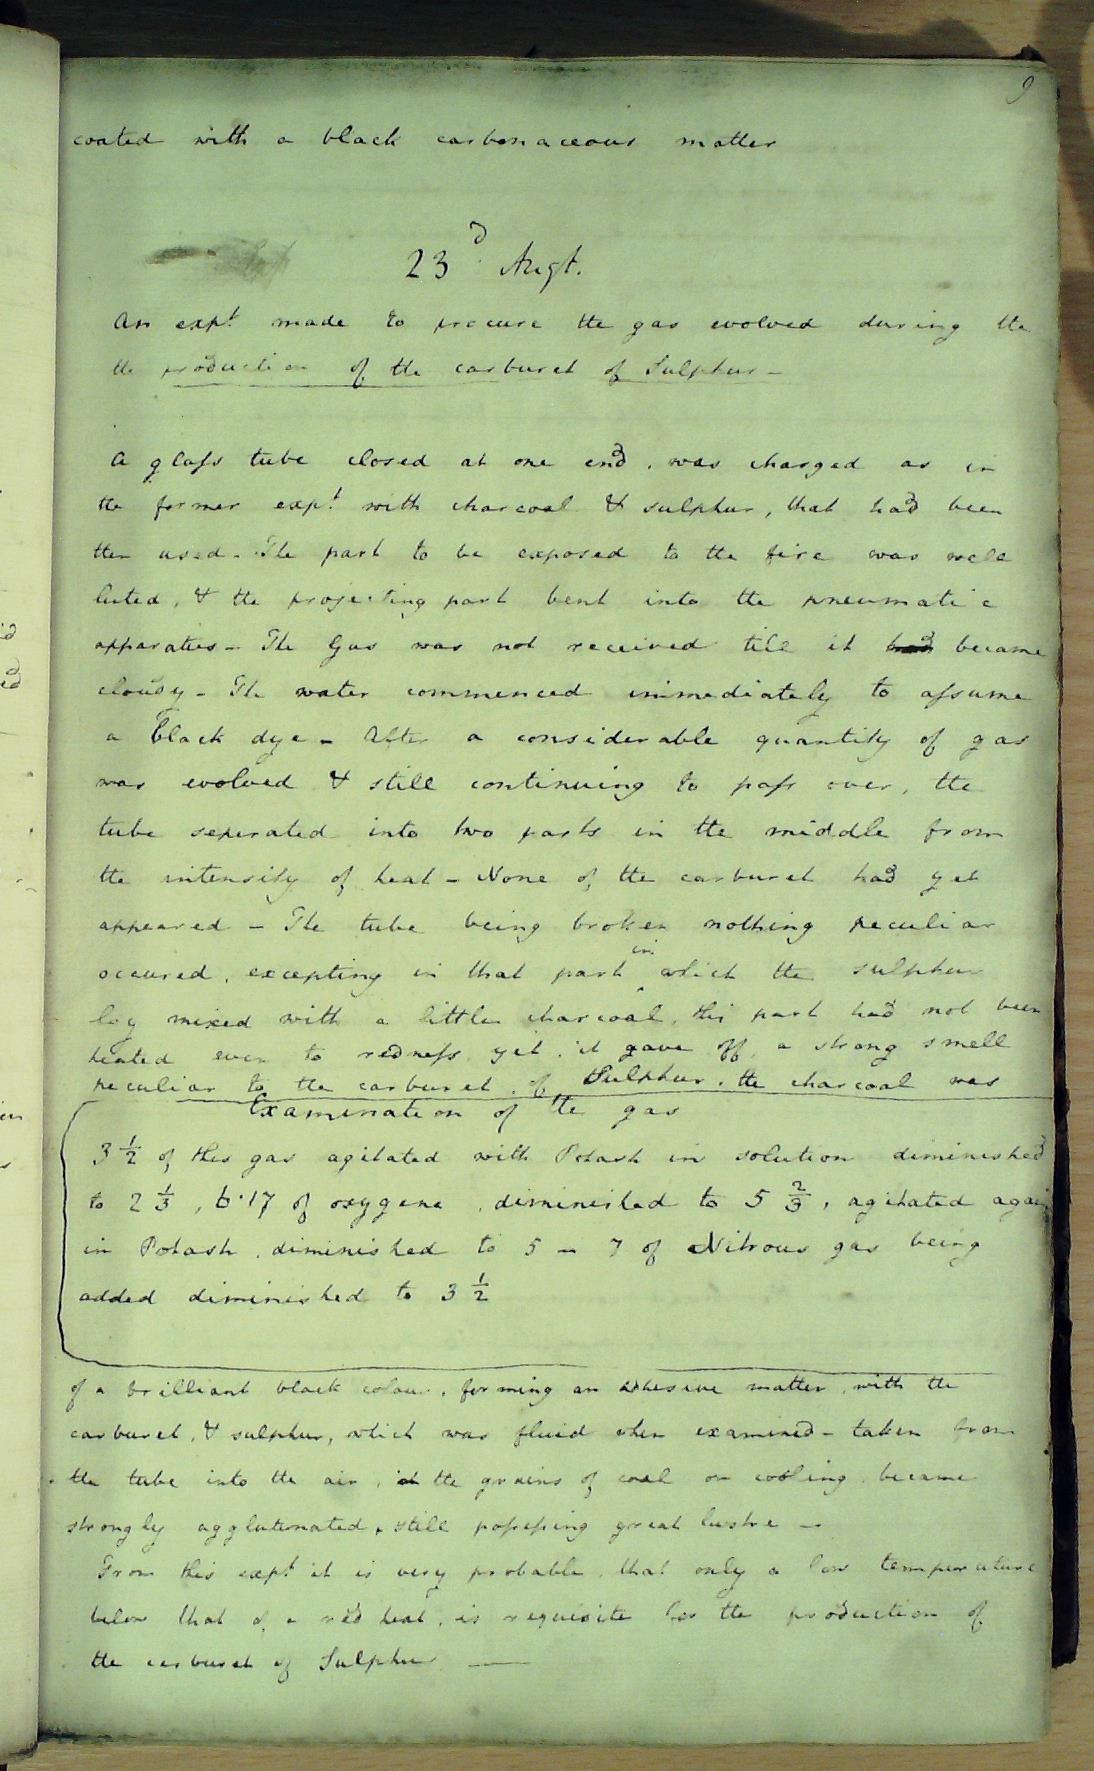 9
coated with a black carbonaceous matter
23d. Augt.
An expt. made to procure the gas evolved during the
the production of the carburet of Sulphur -
A glass tube closed at one end, was charged as in
the former expt. with charcoal & sulphur, that had been
then used - The part to be exposed to the fire was well
luted, & the projecting part bent into the pneumatic
apparatus - The Gas was not received till it had became
cloudy - The water commenced immediately to assume
a black dye - After a considerable quantity of gas
was evolved & still continuing to pass over, the
tube seperated into two parts in the middle from
the intensity of heat - None of the carburet had yet
appeared - The tube being broken nothing peculiar
occured, excepting in that part in which the sulphur
lay mixed with a little charcoal, this part had not been
heated even to redness, yet, it gave off, a strong smell
peculiar to the carburet of Sulphur. the charcoal was
Examination of the gas
3 1/2 of this gas agitated with Potash in solution diminished
to 2 1/3, 6.17 of oxygene, diminished to 5 2/3, agitated again
in Potash, diminished to 5 - 7 of Nitrous gas being
added diminished to 3 1/2
of a brilliant black colour, forming an adhesive matter, with the
carburet, & sulphur, which was fluid when examined - taken from
the tube into the air, the grains of coal on cooling, became
strongly agglutenated, still possessing great lustre -
From this expt. it is very probable, that only a low temperature
below that of a red heat, is requisite for the production of
the carburet of Sulphur